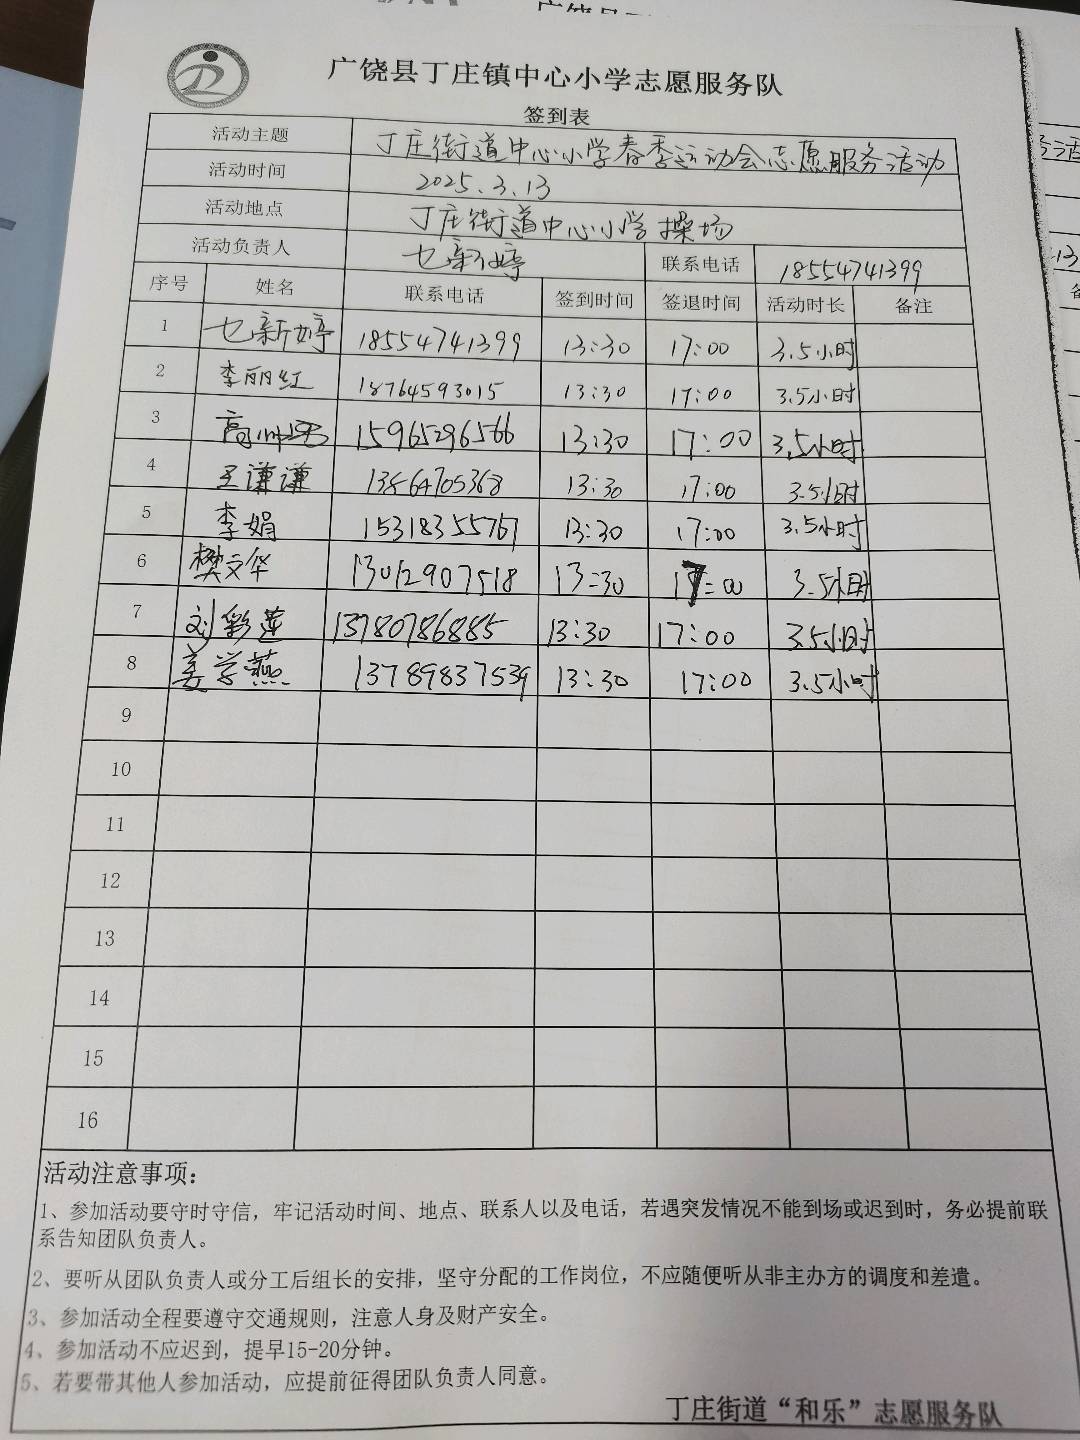 广饶县丁庄镇中心小学志愿服务队
签到表
活动主题 丁庄街道中心小学春季运动会志愿服务活动
活动时间 2025.3.13
活动地点 丁庄街道中心小学操场
活动负责人 七新婷 联系电话 18554741399
序号 姓名 联系电话 签到时间 签退时间 活动时长 备注
1 七新婷 18554741399 13:30 17:00 3.5小时
2 李丽红 18764593015 13:30 17:00 3.5小时
3 15965296566 13:30 17:00 3.5小时
4 王谦谦 13864705368 13:30 17:00 3.5小时
5 李娟 15318355767 13:30 17:00 3.5小时
6 樊文华 13012907518 13:30 17:00 3.5小时
7 刘彩莲 13780786885 13:30 17:00 3.5小时
8 姜学燕 13789837539 13:30 17:00 3.5小时
9
10
11
12
13
14
15
16
活动注意事项：
1、参加活动要守时守信，牢记活动时间、地点、联系人以及电话，若遇突发情况不能到场或迟到时，务必提前联
系告知团队负责人。
2、要听从团队负责人或分工后组长的安排，坚守分配的工作岗位，不应随便听从非主办方的调度和差遣。
3、参加活动全程要遵守交通规则，注意人身及财产安全。
4、参加活动不应迟到，提早15-20分钟。
5、若要带其他人参加活动，应提前征得团队负责人同意。
丁庄街道“和乐”志愿服务队